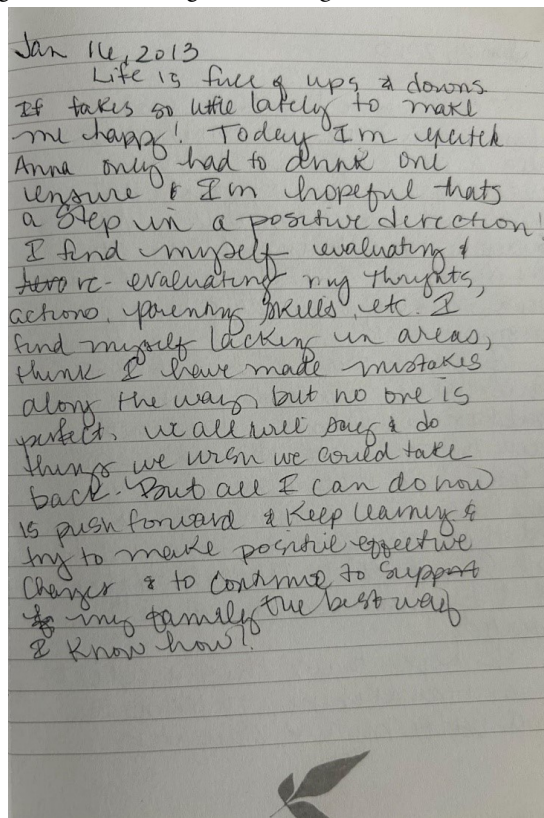 Jan 16, 2013
Life is full of ups & downs.
It takes so little lately to make
me happy! Today I'm
Anna only had to drink one
ensure & I'm hopeful thats
a step in a positive direction!
I find myself evaluating &
re-evaluating my thoughts,
actions, parenting skills, etc. I
find myself lacking in areas,
think I have made mistakes
along the way, but no one is
perfect, we all will say & do
things we wish we could take
back. But all I can do now
is push forward & keep learning &
try to make positive effective
changes & to continue to support
my family the best way
I know how!